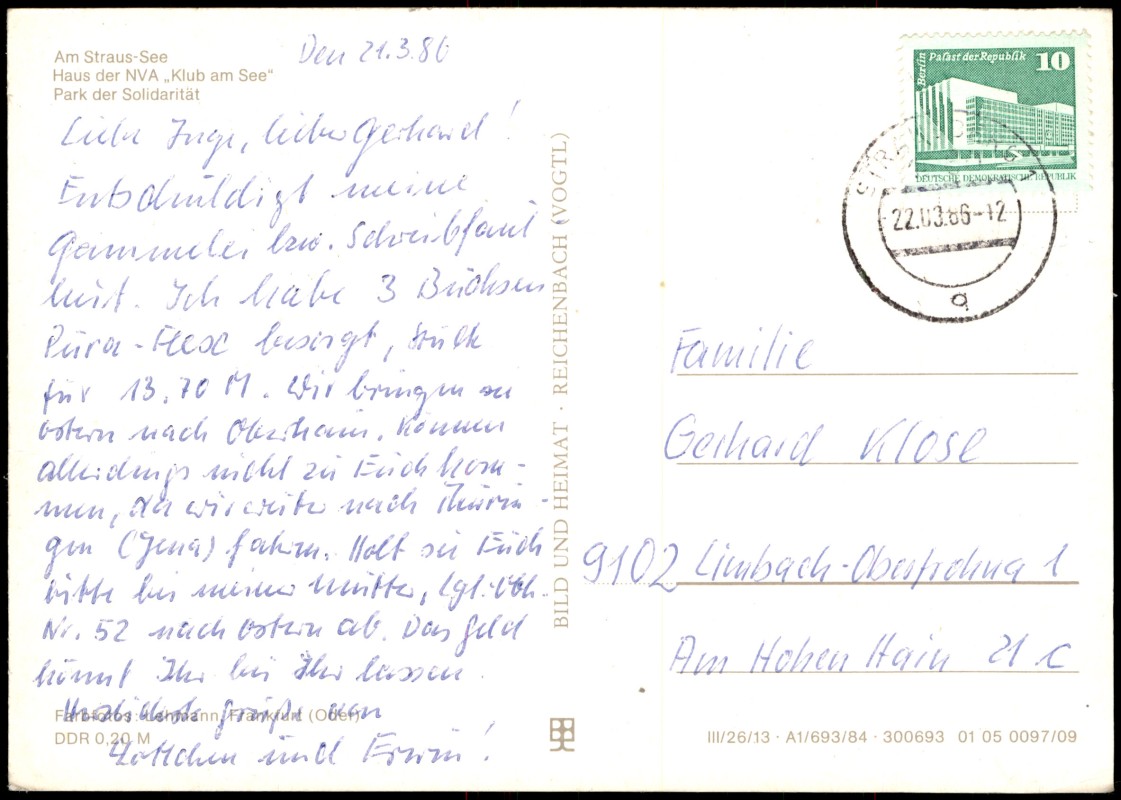 Am Straus-See
Haus der NVA „Klub am See"
Park der Solidarität
Den 21.3.86
Liebe Inge, lieber Gerhard!
Entschuldigt meine
Gammelei bzw. Schreibfaul
heit. Ich habe 3 Büchsen
Pura-Flex besorgt, Stück
für 13,70 M. Wir bringen sie
Ostern nach Oberhain. Können
allerdings nicht zu Euch kom-
men, da wir weiter nach Thürin-
gen (Jena) fahren. Holt sie Euch
bitte bei meiner Mutter,
Nr. 52 nach Ostern ab. Das Geld
könnt Ihr bei Ihr lassen.
Herzlichste Grüße von
Lottchen und Erwin!
Farbfotos: Lehmann, Frankfurt (Oder)
DDR 0,20 M
BILD UND HEIMAT · REICHENBACH (VOGTL)
Berlin Palast der Republik 10
DEUTSCHE DEMOKRATISCHE REPUBLIK
STRAUSBERG 1
22.03.86-12
a
Familie
Gerhard Klose
9102 Limbach-Oberfrohna 1
Am Hohen Hain 21 c
III/26/13 · A1/693/84 · 300693 01 05 0097/09